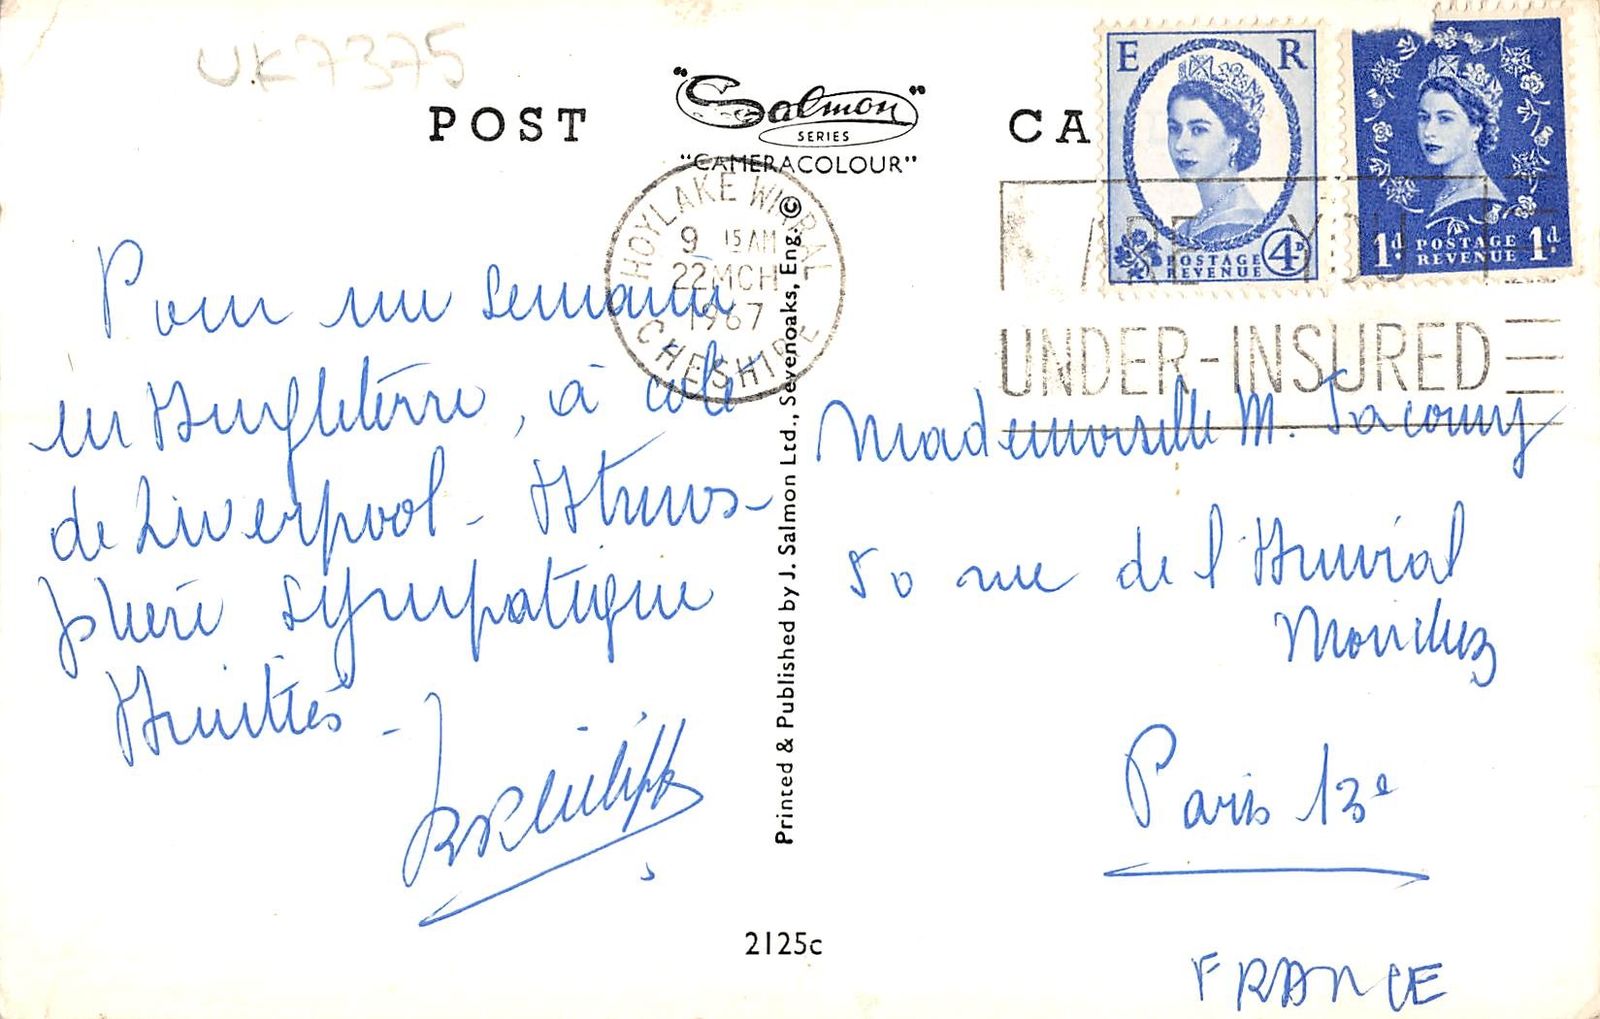 UK7375
POST CA
"Salmon"
SERIES
"CAMERACOLOUR"
E R
POSTAGE
REVENUE 4D
1d POSTAGE 1d
REVENUE
HOYLAKE WIRRAL
9 15 AM
22 MCH
1967
CHESHIRE
ARE YOU
UNDER-INSURED
Pour une semaine
en Angleterre, à côté
de Liverpool - Atmos-
phère sympathique
Amitiés -
Philippe
Printed & Published by J. Salmon Ltd., Sevenoaks, Eng. ©
Mademoiselle M.
50 rue de l'Amiral
Mouchez
Paris 13e
FRANCE
2125c